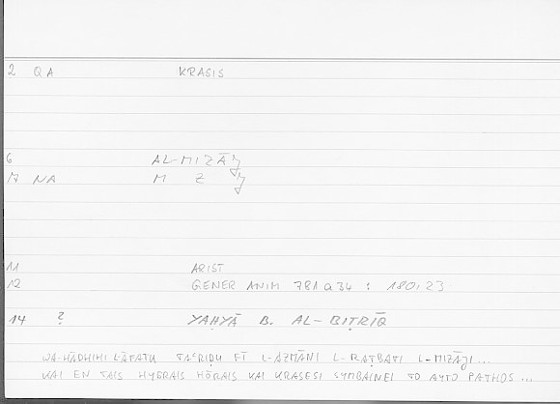 2 QA KRASIS
6 AL-MIZĀǦ
17 NA M Z Ǧ
11 ARIST
12 GENER ANIM 781a34 : 180,23
14 ? YAḤYĀ B. AL-BIṬRĪQ
WA-HĀḎIHI L-ĀFATU TAʿRIḌU FĪ L-AZMĀNI L-RAṬBATI L-MIZĀǦI...
KAI EN TAIS HYGRAIS HŌRAIS KAI KRASESI SYMBAINEI TO AYTO PATHOS ...